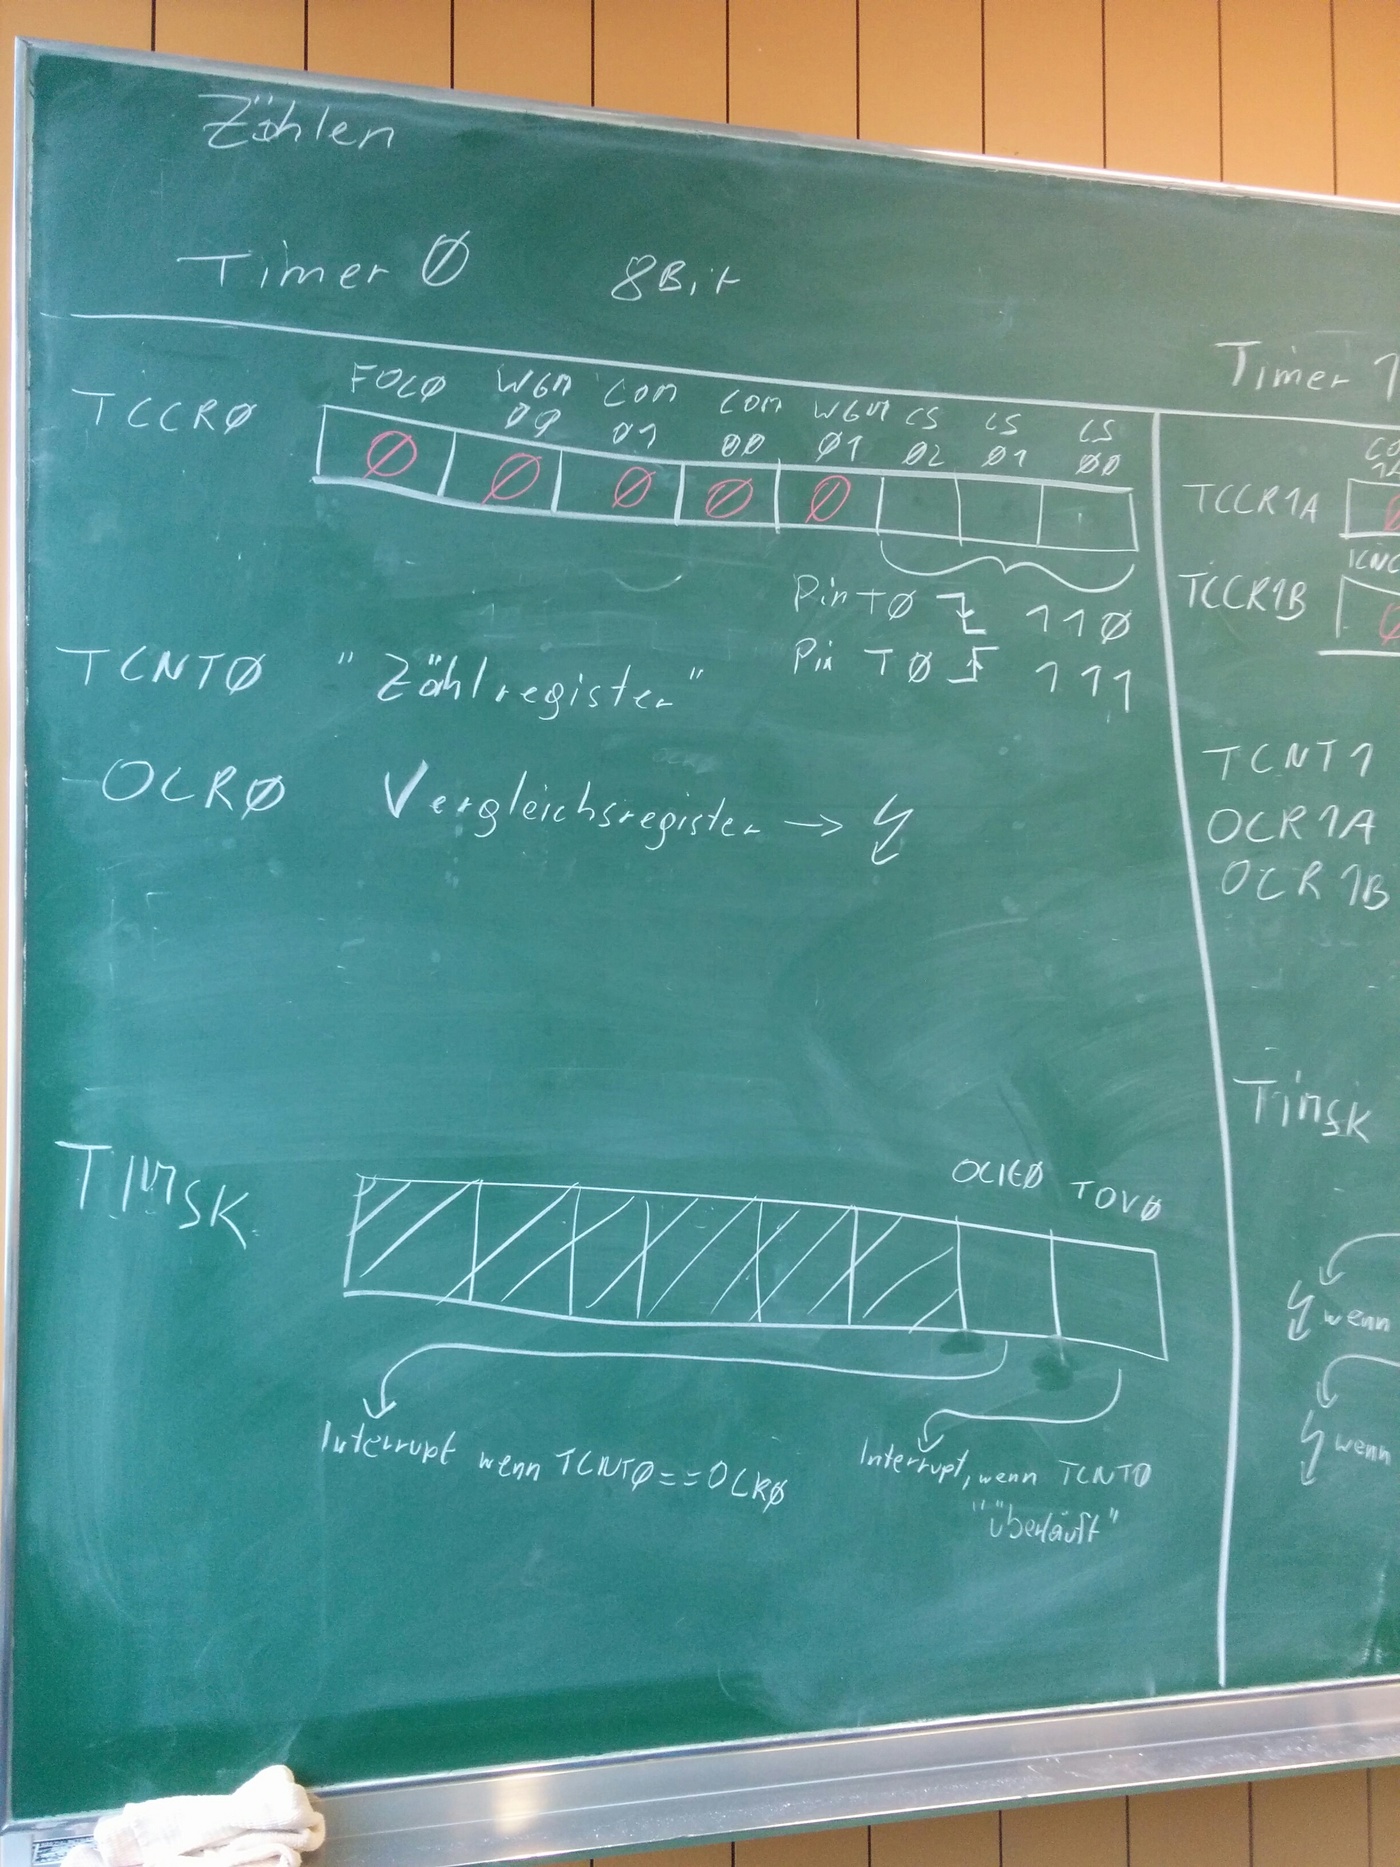 Zählen
Timer 0 8Bit
TCCR0
FOC0 WGM 00 COM 01 COM 00 WGM 01 CS 02 CS 01 CS 00
0 0 0 0 0
Pin T0 110
Pin T0 111
TCNT0 "Zählregister"
OCR0 Vergleichsregister →
TIMSK
OCIE0 TOV0
Interrupt wenn TCNT0==OCR0
Interrupt, wenn TCNT0
"überläuft"
Timer 1
TCCR1A
TCCR1B
TCNT1
OCR1A
OCR1B
TIMSK
wenn
wenn